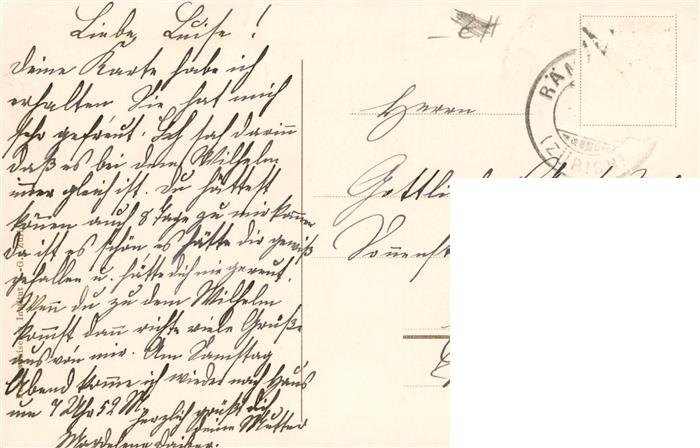 Liebe Luise!
Deine Karte habe ich
erhalten Sie hat mich
sehr gefreut. Ich sah darin
daß es bei dem Wilhelm
immer gleich ist. Du hättest
können auch 8 Tage zu mir kommen
da ist es schön es hätte dir gewiß
gefallen u. hätte dich nie gereut.
Wenn du zu dem Wilhelm
kommst dann richte viele Grüße
aus von mir. Am Samstag
Abend komme ich wieder nach Haus
um 7 Uhr 52 M
herzlich grüßt dich
deine Mutter
Magdalena Daiber.
Herrn
Gottli
Sonnenst
RÄM
(ZÜRICH)